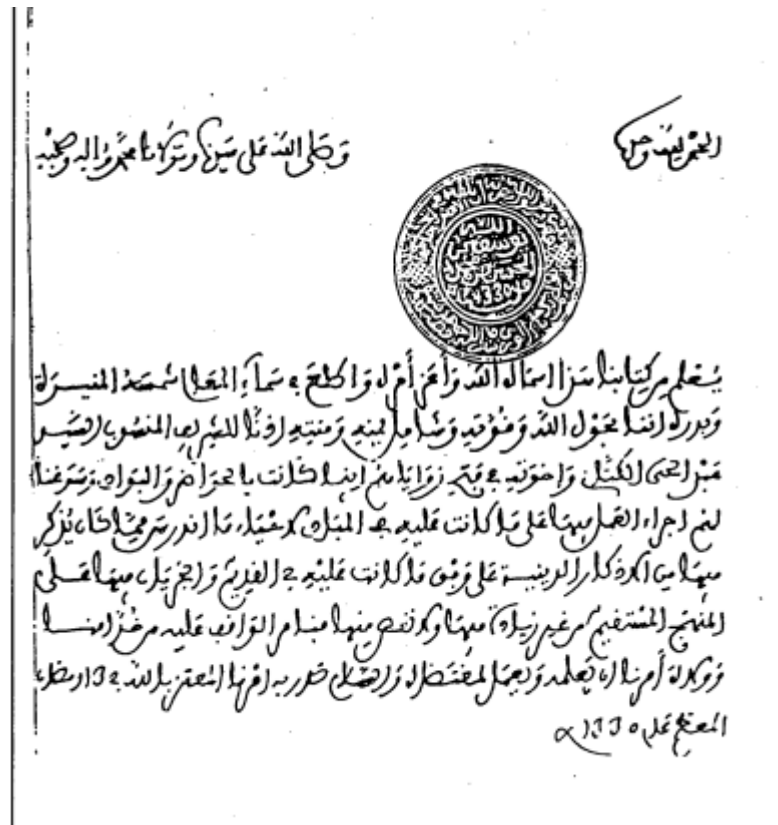 الحمد لله وحده وصلى الله على سيدنا ومولانا محمد وآله وصحبه
الله
يوسف بن
الحسن
1330
يعلم من كتابنا هذا أسماه الله وأعز أمره وأطلع في سماء المعالي شمسه المنيرة
وبدره أننا بحول الله وقوته وشامل يمنه ومنته أذنا للشريف المنصوب السيد
عبد الحي الكتاني وإخوته في فتح زواياهم أينما كانت بالحواضر والبوادي وسوغنا
لهم إجراء العمل بها على ما كانت عليه في المبادئ لإحياء ما اندرس مما كان يذكر
فيها من الأذكار الدينية على وفق ما كانت عليه في القديم والجريان فيها على
المنهج المستقيم من غير زيادة فيها ولا نقص منها فنأمر الواقف عليه من خدامنا
وولاة أمرنا أن يعلمه ويعمل بمقتضاه والسلام صدر به أمرنا المعتز بالله في 13 رمضان
المعظم عام 1330